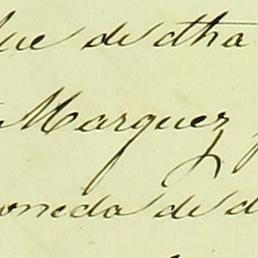 que de dha
Marquez y
oneda de d